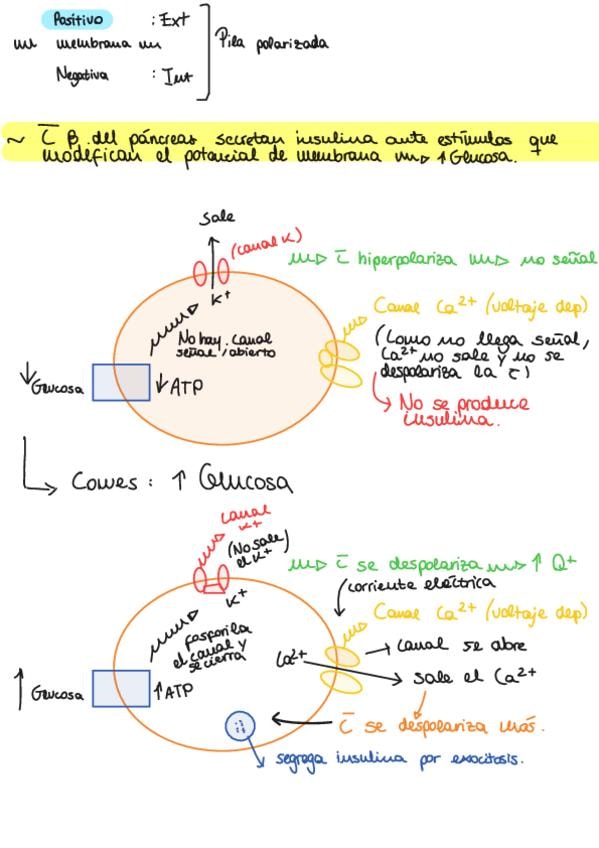 Positivo : Ext
membrana
Negativa : Int
Pila polarizada
~ C̅ β del páncreas secretan insulina ante estímulos que
modifican el potencial de membrana ↑ Glucosa.
Sale
(canal K)
K+
No hay canal
señal, abierto
↓ Glucosa
↓ ATP
C̅ hiperpolariza no señal
Canal Ca2+ (voltaje dep)
(Como no llega señal,
Ca2+ no sale y no se
despolariza la C̅)
No se produce
insulina.
Comes: ↑ Glucosa
canal
K+
(No sale
el K+)
K+
fosforila
el canal y
se cierra
↑ Glucosa
↑ATP
C̅ se despolariza ↑ Q+
corriente eléctrica
Canal Ca2+ (voltaje dep)
Ca2+
canal se abre
sale el Ca2+
C̅ se despolariza más.
segrega insulina por exocitosis.